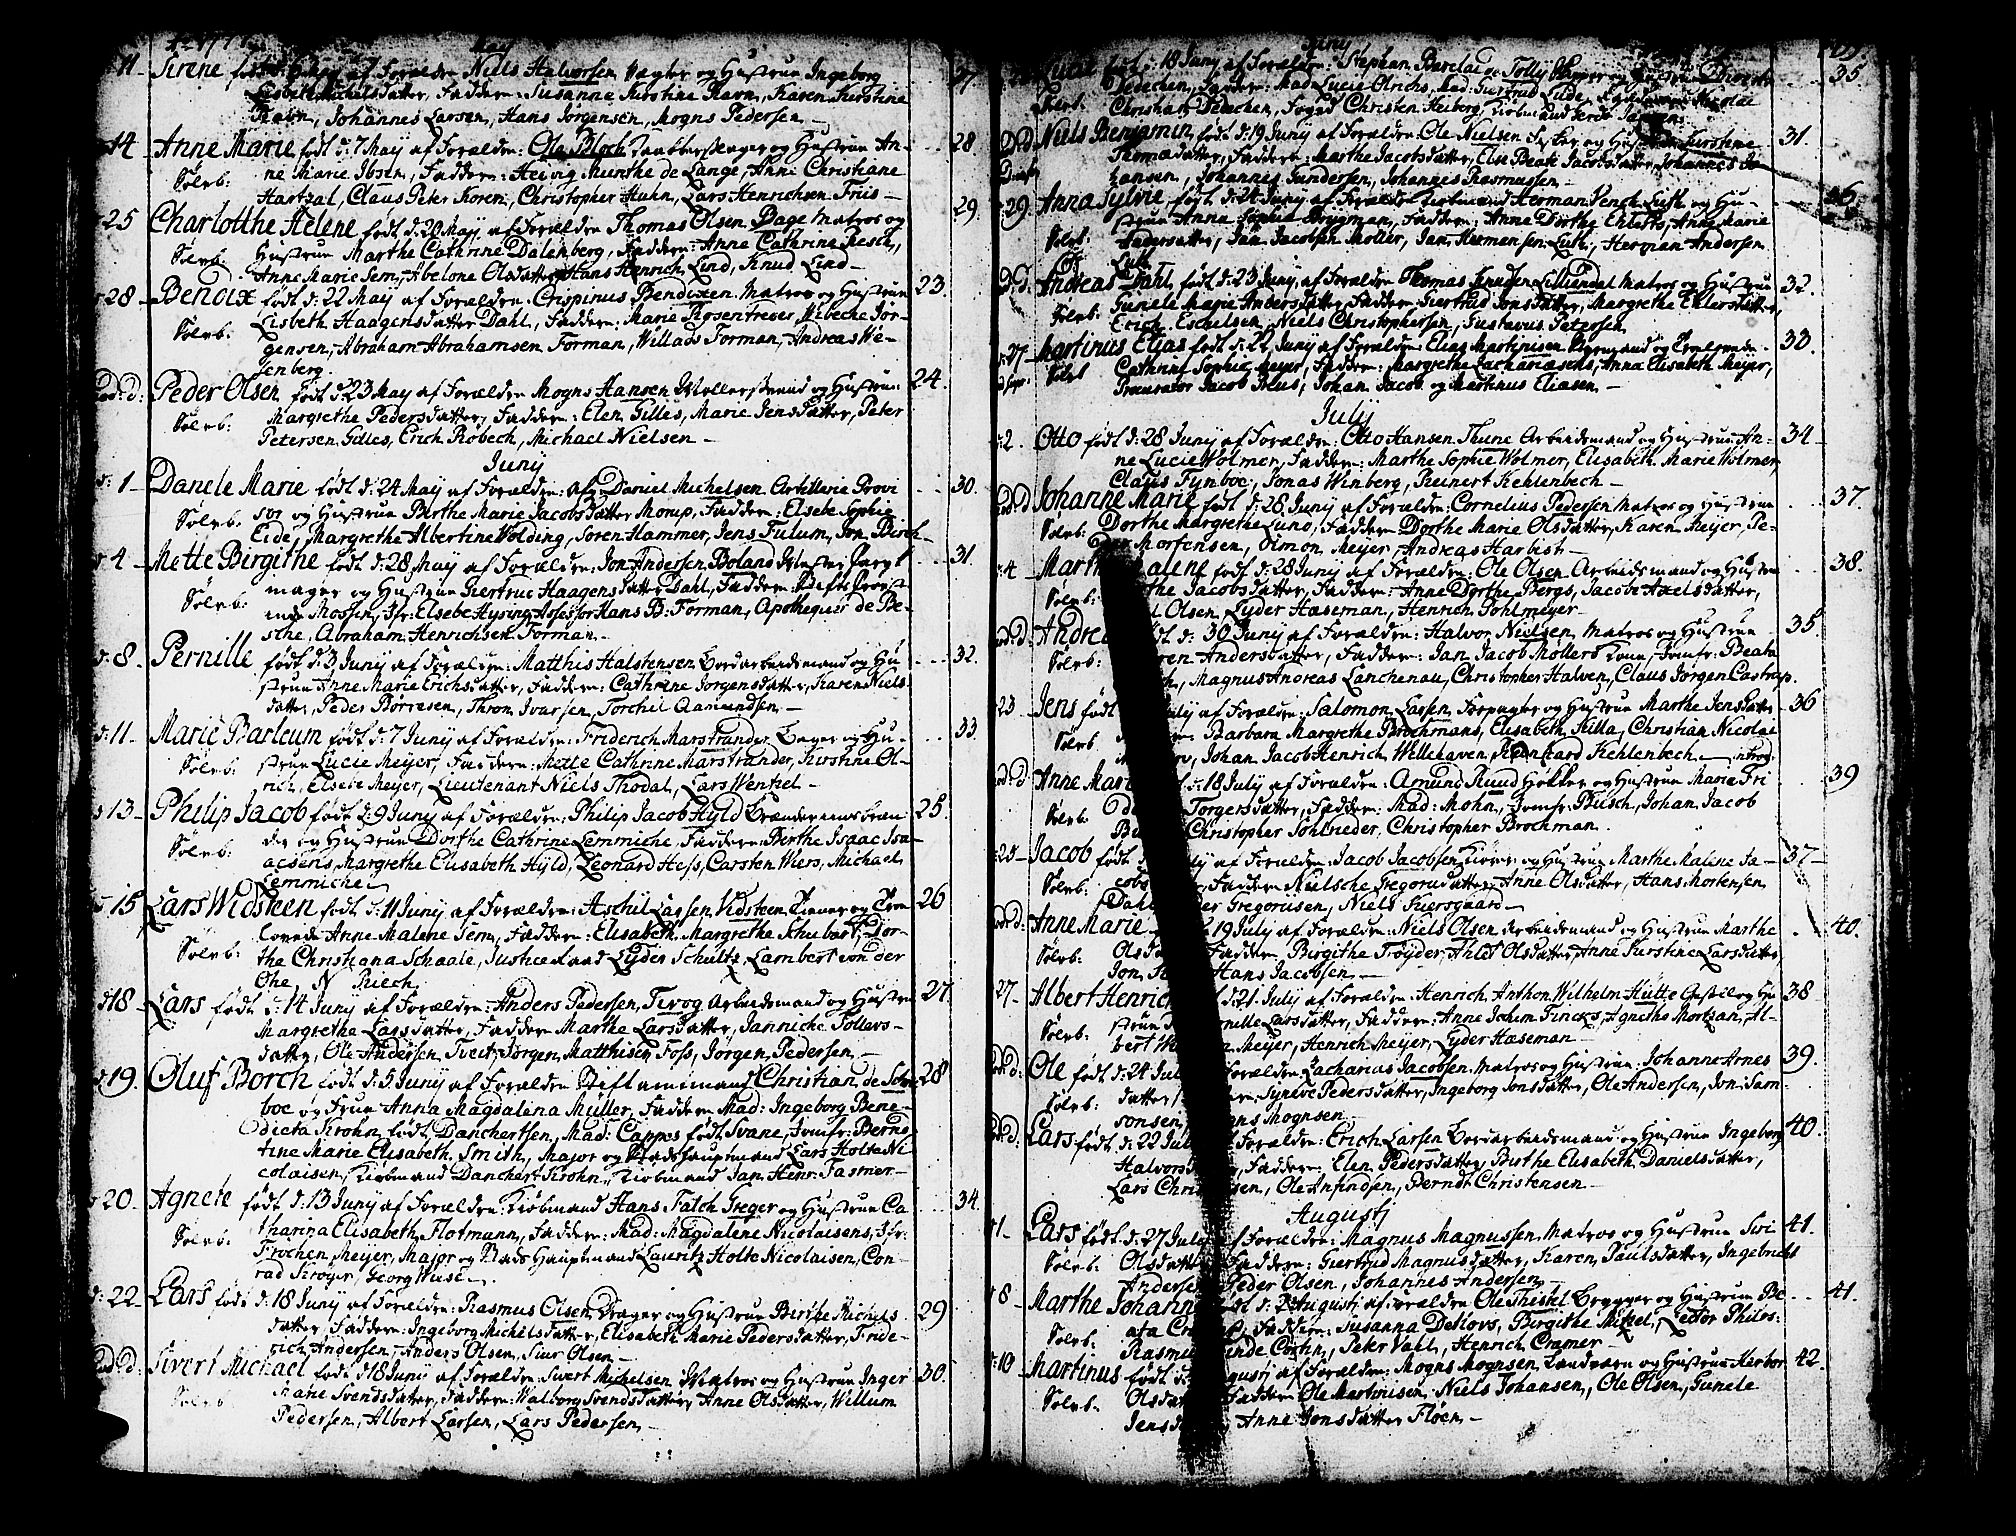 May
11 Sirene født d: 6 May af Forældre Niels Halvorsen Vægter og Hustrue Ingeborg 27.
Lisbeth Michelsdatter, Faddere: Susanne Kirstine Ravn, Karen Kirstine
Ravn, Johannes Larsen, Hans Jorgensen, Mogns Pedersen
14 Anne Marie født d: 7 May af Forældre: Ola Bloch og Hustrue An- 28
Sølvb: ne Marie Ibsen, Faddere: Hervig Munthe de Lange, Anne Christiane
Hartzal, Claus Peter Koren, Christopher Hahn, Lars Henrichsen Friis
25 Charlotthe Helene født d: 20 May af Forældre Thomas Olsen Bage Matros og 29.
Sølvb: Hustrue Marthe Cathrine Dalenberg, Faddere: Anne Cathrine Resch,
Anne Marie Sem, Abelone Olsdatter, Hans Henrich Lind, Knud Lind
28 Bendix født d: 22 May af Forældre: Crispinus Bendixen Matros og Hustrue 23.
Sølvb: Lisbeth Haagensdatter Dahl, Faddere: Marie Rosentreter, Wibeche Jor-
gensen, Abraham Abrahamsen Forman, Willads Forman, Andreas We-
senberg.
Eod: D: Peder Olsen født d: 23 May af Forældre Mogns Hansen Møllersvend og Hustrue 24.
Sølvb: Margrethe Pedersdatter, Faddere: Elen Gilles, Marie Jensdatter, Peter
Petersen Gilles, Erich Robech, Michael Nielsen
Junÿ
d: 1 Danele Marie født d: 24 May af Forældre: af Daniel Michelsen Artillerie Provi 30.
Sølvb. sor og Hustrue Birthe Marie Jacobsdatter Momp, Faddere: Elsebe Sophie
Eide, Margrethe Albertine Wolding, Soren Hammer, Jens Fulum, Jon Birch
4 Mette Birgithe født d: 28 May af Forældre: Jon Andersen Boland Mester 31.
Sølvb: mager og Hustrue Giertrue Haagensdatter Dahl, Faddere:
Moosen, Jfr: Elsebe Hysing, Assessor Hans D: Forman, Apotheqver de Be-
sche, Abraham Henrichsen Forman.
d: 8 Pernille født d: 3 Juny af Forældre: Matthis Halstensen Bordarbeidsmand og Hu 32.
strue Anne Marie Erichsdatter, Faddere: Cathrine Jorgensdatter, Karen Niels
datter, Peder Börresen, Thron Ivarsen, Torchil Aamundsen
d: 11 Marie Barleum født d: 7 Juny af Forældre: Friderich Marstrander Bager og Hu- 33.
Sølvb: strue Lucie Meyer, Faddere: Mette Cathrine Marstrander, Kirstine Ol-
rich, Elsebe Meyer, Lieutenant Niels Thodal, Lars Wenkel
13 Philip Jacob født d: 9 Juny af Forældre: Philip Jacob Hyld 25.
Sølvb: der og Hustrue Dorthe Cathrine Lemmiche, Faddere: Birthe Isaac Isa-
acsens, Margrethe Elisabeth Hyld, Leonard Hess, Carsten Wiers, Michael
Lemmiche
15 Lars Widsteen født d: 11 Juny af Forældre: Aschil Lassen Vidsteen Tiener og Tro 26
Sølvb: lovede Anne Malene Sem, Faddere: Elisabeth Margrethe Schubart, Dor-
the Christiana Schaale, Justice Raad Lyder Schultz, Lambert von der
Ohe, N Riech
18 Lars født d: 14 Juny af Forældre: Anders Pedersen Tevog Arbeidsmand og Hustrue 27.
Margrethe Larsdatter, Faddere Marthe Larsdatter, Janniche Tollevs-
datter, Ole Andersen Tveit, Jorgen Matthisen Foss, Jörgen Pedersen
19. Oluf Borch født d: 5 Juny af Forældre Stiftamtmand Christian de Scho 28
boe og Frue Anna Magdalena Müller, Faddere Mad: Ingeborg Bene-
dicta Krohn født Danchertsen, Mad: Cappes født Svane, Jomfr: Bernd-
tine Marie Elisabeth Smith, Major og Stadshauptmand Lars Holte Ni
colaisen, Kiøbmand Danchert Krohn, Kiøbmand Jan Henr: Fasmer
20 Agnete født d: 13 Juny af Forældre: Kiøbmand Hans Falch Greger og Hustrue Ca 34.
Sølvb: tharina Elisabeth Flotmann, Faddere: Mad: Magdalene Nicolaisens, Jfr:
Trochen Meyer, Major og Stads Hauptmand Lauritz Holte Nicolaisen, Con-
rad Krøyer, Georg Wiise
d: 22 Lars født d: 18 Juny af Forældre: Rasmus Olsen Drager og Hustrue Birthe Michels 29
datter, Faddere: Ingeborg Michelsdatter, Elisabeth Marie Pedersdatter, Fride-
rich Andersen, Anders Olsen, Siur Olsen
Eod: D: Sivert Michael født d: 18 Juny af Forældre: Sivert Michelsen Matros og Hustrue Inger 30.
Sølvb: Marie Svendsdatter, Faddere: Walborg Svendsdatter, Anne Olsdatter, Willum
Pedersen, Albert Larsen, Lars Pedersen
Juny
Lucie født d: 18 Juny af Forældre: Stephan Barclai og Hustrue 35
Sølvb. Dedechen, Faddere: Mad: Lucie Olrichs, Mad: Giertrud Lüde,
Christian Dedechen, Foged Christen Heiberg, Kiøbmand
Eod: D Niels Benjamin født d: 19 Juny af Forældre: Ole Nielsen Fisker og Hustrue Kirstine 31.
Thomasdatter, Faddere: Marthe Jacobsdatter, Else Beate Jacobsdatter, Johannes Jo
hansen, Johannes Gundersen, Johannes Rasmussen
29. Anna Sylvie født d: 24 Juny af Forældre Kiøbmand Herman Vench Lutk og Hu- 36
Sølvb: strue Anna Sophia Brygman, Faddere: Anne Dorthe Ehlerts, Anne Marie
Andersdatter, Jan Jacobsen Moller, Jan Hermensen Lutk, Herman Andersen
Lutk
Eod: D. Andreas Dahl født d: 23 Juny af Forældre Thomas Knudsen Lilliendal Matros og Hustrue 32.
Sølvb: Gunele Marie Andersdatter, Faddere Giertrud Jonsdatter, Margrethe Ehlersdatter,
Erich Eschelsen, Niels Christophersen, Gustavus Petersen
27 Martinus Elias født d: 22 Juny af Forældre: Elias Martinisen Byemand og Trolovede 33.
Sølvb Cathrine Sophia Meyer, Faddere: Margrethe Zachariæsens, Anna Elisabeth Meyer,
Procurator Jacob Juus, Johan Jacob og Martinus Eliasen
Julÿ
2. Otto født d: 28 Juny af Forældre: Otto Hansen Thune Arbeidsmand og Hustrue An- 34
ne Lucie Wolmer, Faddere: Marthe Sophie Wolmer, Elisabeth Marie Wolmer
Claus Fynboe, Jonas Winberg, Reinert Kehlenbech
Eod: D Johanne Marie født d: 28 Juny af Forældre: Cornelius Pedersen Matros og Hustrue 37.
Sølvb: Dorthe Margrethe Lund, Faddere Dorthe Marie Olsdatter, Karen Meyer, Pe-
der Mortensen, Simon Meyer, Andreas Harbist
4 Marthe Malene født d: 28 Juny af Forældre: Ole Olsen Arbeidsmand og Hustrue 38.
Sølvb: Jacobsdatter, Faddere: Anne Dorthe Bergs, Jacobe Axelsdatter,
Olsen, Lyder Hæseman, Henrich Pohlmeyer
Eod: D: Andrea født d: 30 Juny af Forældre: Halvor Nielsen Matros og Hustrue 35.
Sølvb: Andersdatter, Faddere: Jan Jacob Möllers Kone, Jomfr: Beata
Magnus Andreas Lanchenau, Christopher Halven, Claus Jørgen Castrup.
23 Jens født July af Forældre: Salomon Lassen Forpagter og Hustrue Marthe Jensdatter 36
Sølvb Barbara Margrethe Brochmans, Elisabeth Killa, Christian Nicolai
Johan Jacob Henrich Willehaven, Reinhard Kehlenbech introd:
Eod: D Anne Marie født d: 18 July af Forældre: Amund Ruud Høkker og Hustrue Marie Fri 39
Sølvb. Torgersdatter, Faddere: Mad: Mohn, Jomfr: Busch, Johan Jacob
Christopher Sohlneder, Christopher Brochman.
25 Jacob født July af Forældre: Jacob Jacobsen og Hustrue Marthe Malene Ja- 37
Sølvb: cobs Faddere Nielsche Gregoriidatter, Anne Olsdatter, Hans Mortensen
Dahl, Gregoriisen, Niels Suersgaard
Eod: D: Anne Marie 19 July af Forældre: Niels Olsen Arbeidsmand og Hustrue Marthe 40.
Sølvb. Olsdatter Faddere Birgithe Trøyder, Ahlet Olsdatter, Anne Kirstine Larsdatter,
Jon Hans Jacobsen
27 Albert Henrich d: 21 July af Forældre: Henrich Anthon Wilhelm Hütte og Hu 38
Sølvb. strue Pernelle Larsdatter, Faddere: Anne Jchim Fincks, Agnethe Mortzan, Al-
bert Meyer, Henrich Meyer, Lyder Hæseman
Eod: D: Ole født d: 24 July Forældre Zacharias Jacobsen Matros og Hustrue Johanne Arnes 39.
Sølvb: datter, Syneve Pedersdatter, Ingeborg Jonsdatter, Ole Andersen, Jon Sam-
sonsen, Mogns Mognsen
Eod: D. Lars født d: 22 July af Forældre: Erich Larsen Bordarbeidsmand og Hustrue Ingeborg 40.
Halvorsdatter, Faddere: Elen Pedersdatter, Birthe Elisabeth Danielsdatter,
Lars Christensen, Ole Anfindsen, Berndt Christensen
Augustj
1. Lars født d: 27 July af Forældre: Magnus Magnussen Matros og Hustrue Siri 41.
Sølvb. Olsdatter Faddere: Giertrud Magnusdatter, Karen Paulsdatter, Ingebricht
Andersen, Peder Olsen, Johannes Andersen
8 Marthe Johanne født d: 2 Augustj af Forældre Ole Thiskel Brygger og Hustrue Be- 41.
Sølvb. ata Cramer, Faddere: Susanna Detlovs, Birgithe Mikel, Lector Philos:
Rasmus Cortin, Peter Vahl, Henrich Cramer
10 Martinus født d: Augustj af Forældre: Mogns Mognsen Landværn og Hustrue Herbor 42.
Sølvb. Olsdatter Faddere Ole Martinisen, Niels Johansen, Ole Olsen, Gunele
Jensdatter Anne Jonsdatter Fløen